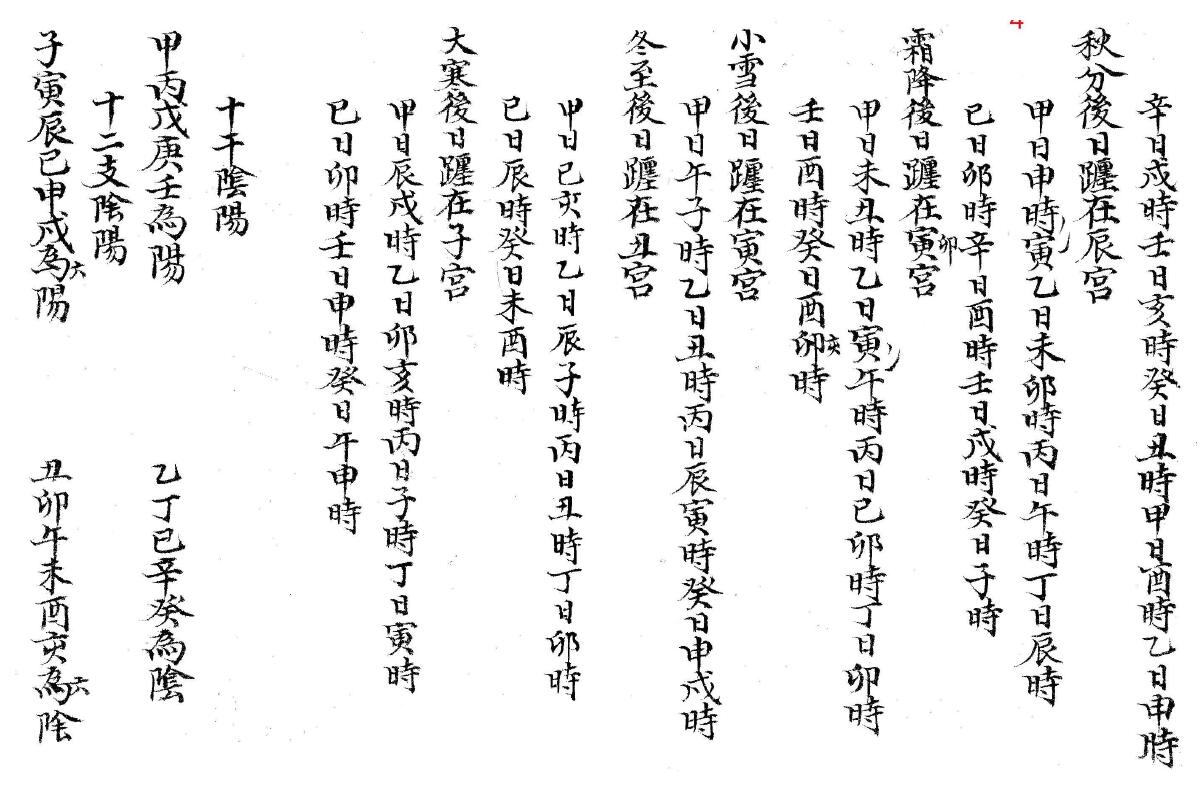 4
辛日戌時壬日亥時癸日丑時甲日酉時乙日申時
秋分後日躔在辰宮
甲日申時寅乙日未卯時丙日午時丁日辰時
己日卯時辛日酉時壬日戌時癸日子時
霜降後日躔在寅宮
卯
甲日未丑時乙日寅午時丙日巳卯時丁日卯時
壬日酉時癸日酉卯時
亥
小雪後日躔在寅宮
甲日午子時乙日丑時丙日辰寅時癸日申戌時
冬至後日躔在丑宮
甲日巳亥時乙日辰子時丙日丑時丁日卯時
己日辰時癸日未酉時
大寒後日躔在子宮
甲日辰戌時乙日卯亥時丙日子時丁日寅時
己日卯時壬日申時癸日午申時
十干陰陽
甲丙戊庚壬為陽 乙丁己辛癸為陰
十二支陰陽
子寅辰巳申戌為六陽 丑卯午未酉亥為六陰